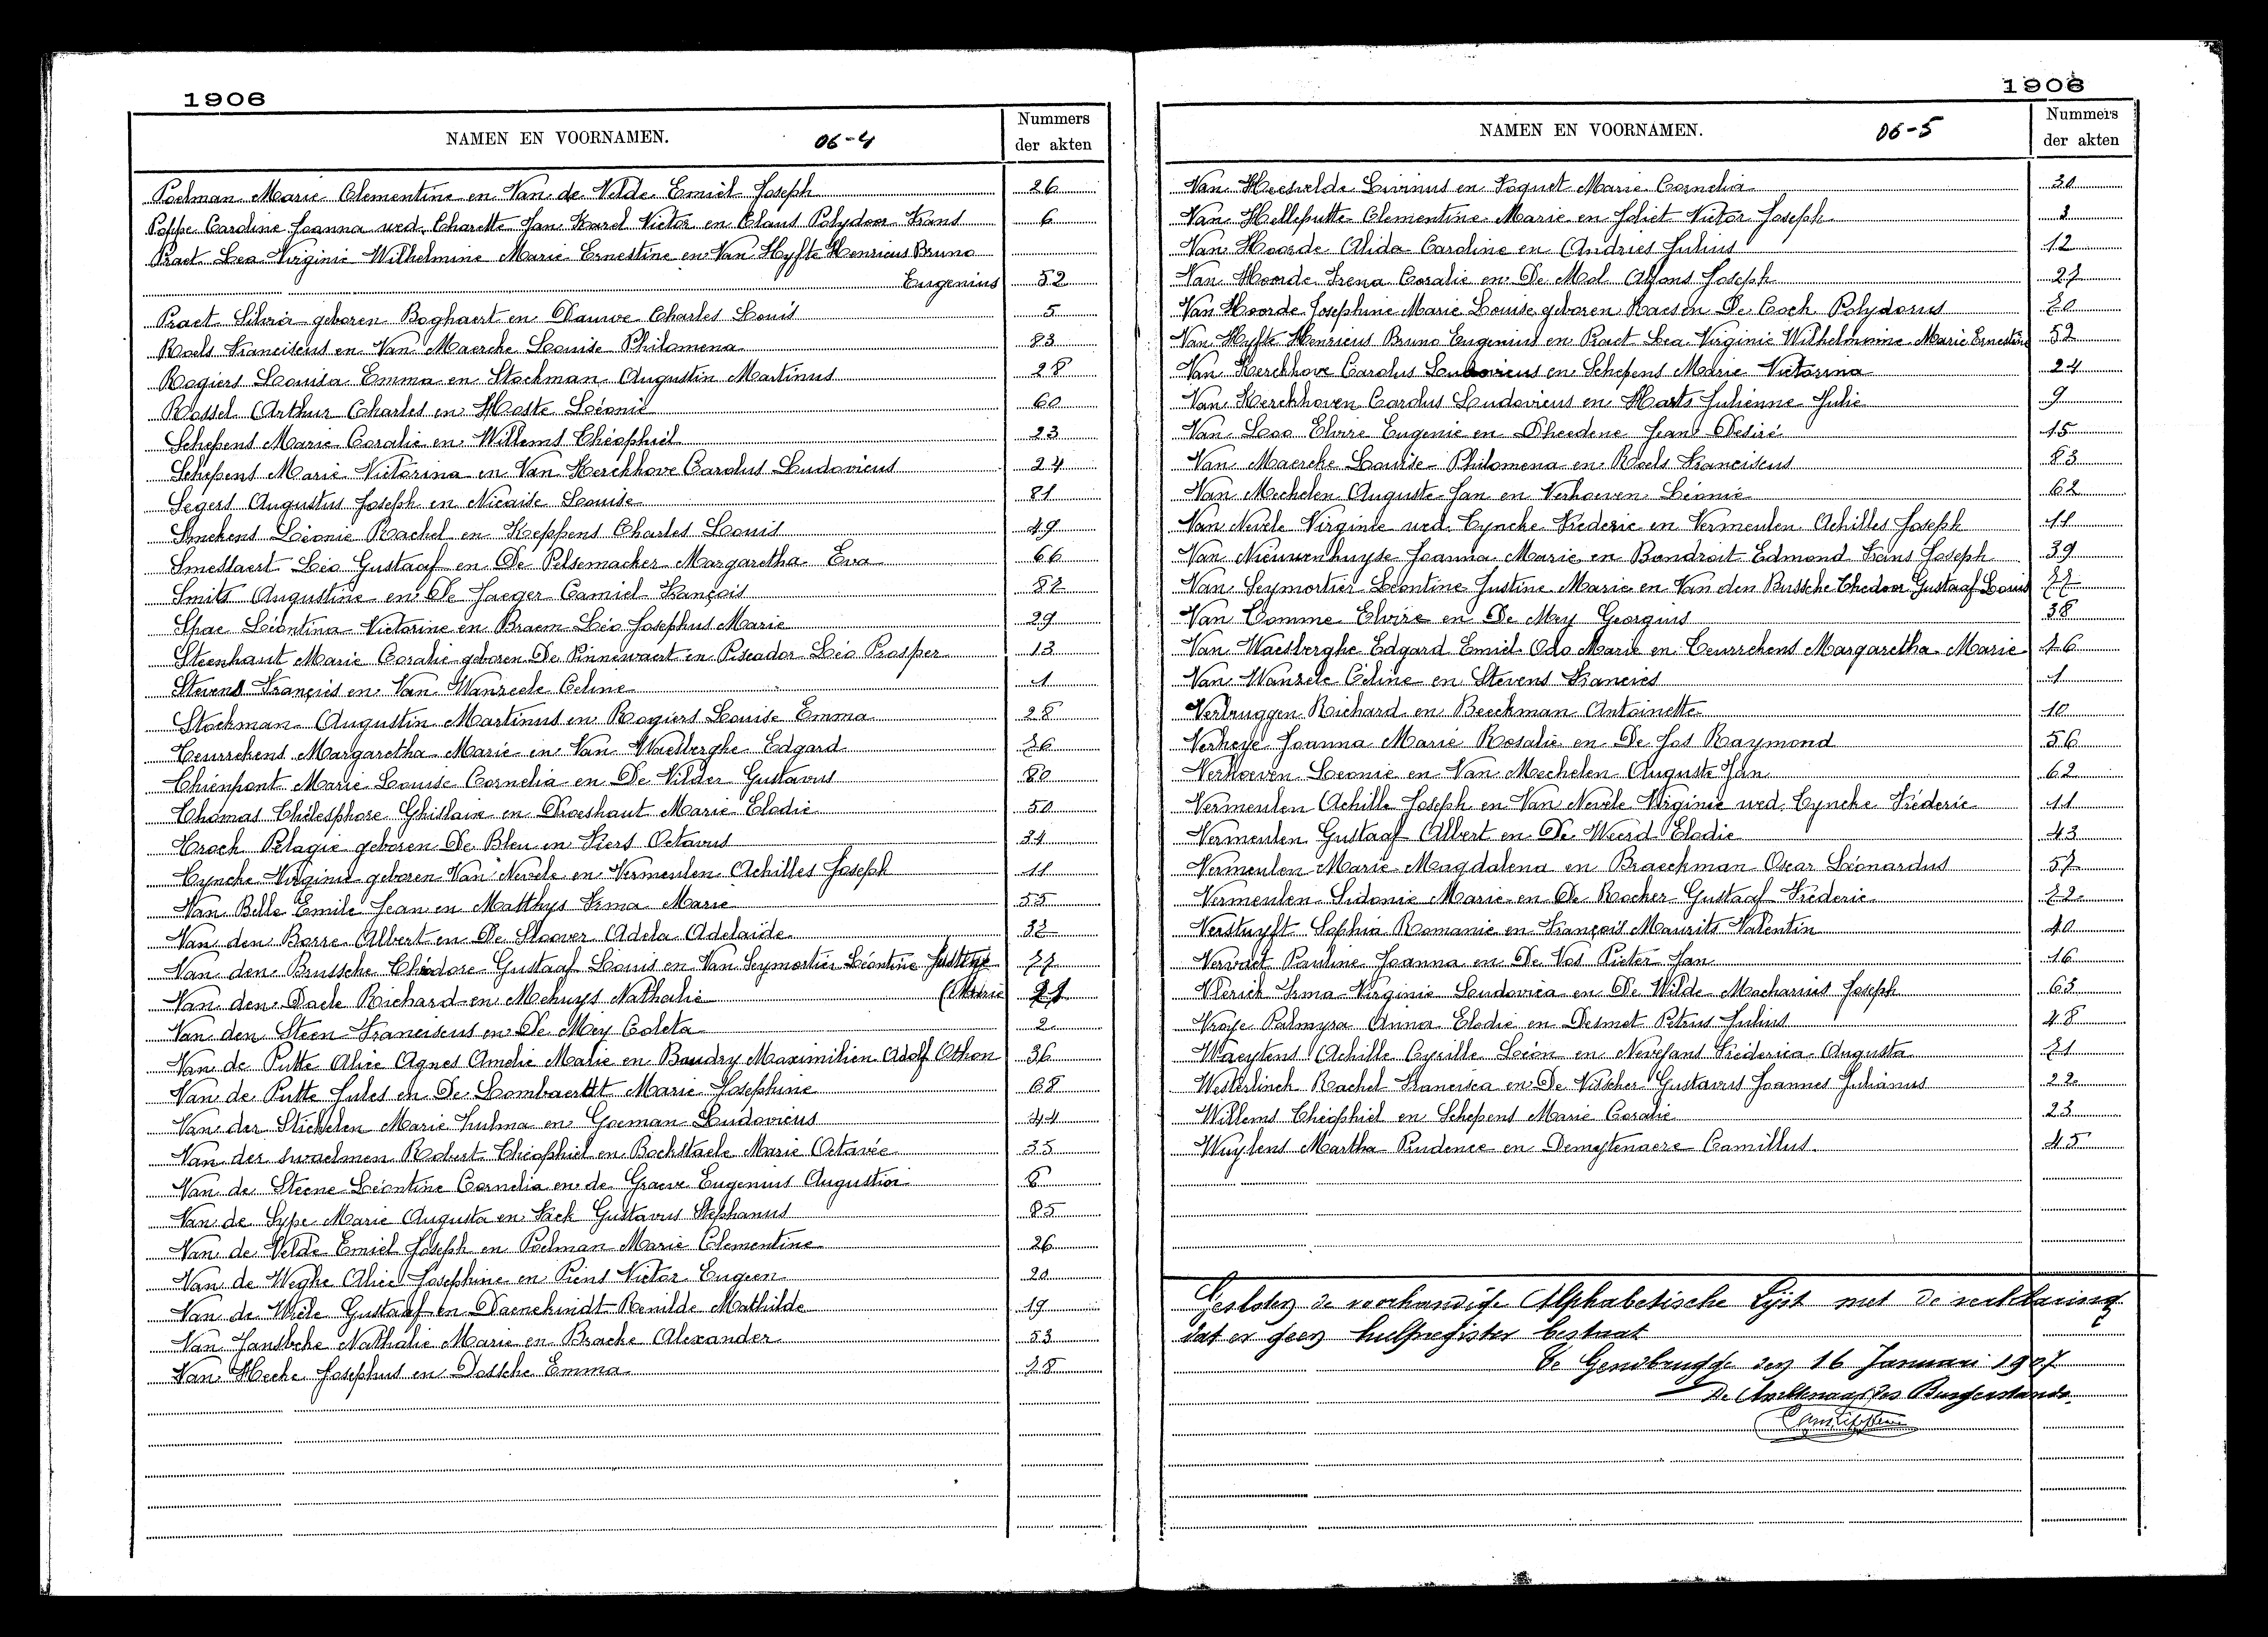 1906
NAMEN EN VOORNAMEN. 06-4 Nummers der akten
Poelman Marie Clementine en Van de Velde Emiel Joseph 26
Poppe Caroline Joanna wed. Charette Jan Karel Victor en Claus Polydoor Frans 6
Praet Lea Virginie Wilhelmine Marie Ernestine en Van Hyfte Henricus Bruno
Eugenius 52
Praet Silvia geboren Boghaert en Dauwe Charles Louis 5
Roels Franciscus en Van Maercke Louise Philomena 83
Rogiers Louisa Emma en Stockman Augustin Martinus 28
Rossel Arthur Charles en Hoste Léonie 60
Schepens Marie Coralie en Willems Théophiel 23
Schepens Marie Victorina en Van Kerckhove Carolus Ludovicus 24
Segers Augustus Joseph en Nicaise Louise 81
Smekens Léonie Rachel en Keppens Charles Louis 49
Smessaert Léo Gustaaf en De Pelsemacker Margaretha Eva 66
Smits Augustine en De Jaeger Camiel François 87
Spae Léontina Victorine en Braem Léo Josephus Marie 29
Steenhaut Marie Coralie geboren De Pinnewaert en Piscador Léo Prosper 13
Stevens François en Van Wanzeele Celine 1
Stockman Augustin Martinus en Rogiers Louise Emma 28
Teurrekens Margaretha Marie en Van Waesberghe Edgard 76
Thienpont Marie Louise Cornelia en De Vilder Gustavus 80
Thomas Thélesphore Ghislain en Droeshaut Marie Elodie 50
Trock Pelagie geboren De Bleu en Kiers Octavus 34
Tyncke Virginie geboren Van Nevele en Vermeulen Achilles Joseph 11
Van Belle Emile Jean en Matthys Irma Marie 55
Van den Borre Albert en De Sloover Adela Adelaïde 37
Van den Brussche Théodore Gustaaf Louis en Van Seymortier Léontine Justine 77
Van den Daele Richard en Mehuys Nathalie (Marie
Van den Steen Franciscus en De Mey Coleta 2
Van de Putte Alice Agnes Amelie Marie en Baudry Maximilien Adolf Othon 36
Van de Putte Jules en De Lombaerdt Marie Josephine 68
Van der Stichelen Marie Zulma en Goeman Ludovicus 44
Van der swaelmen Robert Théophiel en Bockstaele Marie Octavée 35
Van de Steene Léontine Cornelia en de Graeve Eugenius Augustin 8
Van de Sype Marie Augusta en Sack Gustavus Stephanus 85
Van de Velde Emiel Joseph en Poelman Marie Clementine 26
Van de Weghe Alice Josephine en Piens Victor Eugeen 20
Van de Wiele Gustaaf en Daenekindt Renilde Mathilde 19
Van Hansbeke Nathalie Marie en Bracke Alexander 53
Van Hecke Josephus en Dossche Emma 78
1906
NAMEN EN VOORNAMEN. 06-5 Nummers der akten
Van Heesvelde Livinus en Foquet Marie Cornelia 30
Van Helleputte Clementine Marie en Joliet Victor Joseph 3
Van Hoorde Alida Caroline en Andries Julius 12
Van Hoorde Irena Coralie en De Mol Alfons Joseph 27
Van Hoorde Josephine Marie Louise geboren Haes en De Cock Polydorus 70
Van Hyfte Henricus Bruno Eugenius en Praet Lea Virginie Wilhelmine Marie Ernestine 52
Van Kerckhove Carolus Ludovicus en Schepens Marie Victorina 24
Van Kerckhoven Carolus Ludovicus en Haerts Julienne Julie 9
Van Loo Elvire Eugenie en Dheedene Jean Desiré 15
Van Maercke Louise Philomena en Roels Franciscus 83
Van Mechelen Auguste Jan en Verhoeven Léonie 62
Van Nevele Virginie wed. Tyncke Fréderic en Vermeulen Achilles Joseph 11
Van Nieuwenhuyse Joanna Marie en Bondroit Edmond Frans Joseph 39
Van Seymortier Léontine Justine Marie en Van den Bussche Theodoor Gustaaf Louis 77
Van Tomme Elvire en De Mey Georgius 38
Van Waesberghe Edgard Emiel Odo Marie en Teurrekens Margaretha Marie 76
Van Wanzele Céline en Stevens Francies 1
Verbruggen Richard en Beeckman Antoinette 10
Verheye Joanna Marie Rosalie en De Jos Raymond 56
Verhoeven Leonie en Van Mechelen Auguste Jan 62
Vermeulen Achille Joseph en Van Nevele Virginie wed. Tyncke Fréderic 11
Vermeulen Gustaaf Albert en De Weerd Elodie 43
Vermeulen Marie Magdalena en Braeckman Oscar Léonardus 57
Vermeulen Sidonie Marie en De Rocker Gustaaf Fréderic 72
Verstuyft Sophia Romanie en François Maurits Valentin 40
Vervaet Pauline Joanna en De Vos Pieter Jan 16
Vlerick Irma Virginie Ludovica en De Wilde Macharius Joseph 63
Vroye Palmyra Anna Elodie en Desmet Petrus Julius 48
Waeytens Achille Cyrille Léon en Nevejans Fréderica Augusta 71
Westerlinck Rachel Francisca en De Visscher Gustavus Joannes Julianus 22
Willems Théophiel en Schepens Marie Coralie 23
Wuytens Martha Prudence en Demeytenaere Camillus 45
Gesloten de voorhandige Alphabetische Lijst met de verklaring
dat er geen hulpregister bestaat
Te Gendbrugge den 16 Januari 1907
De Ambtenaar des Burgerstands.